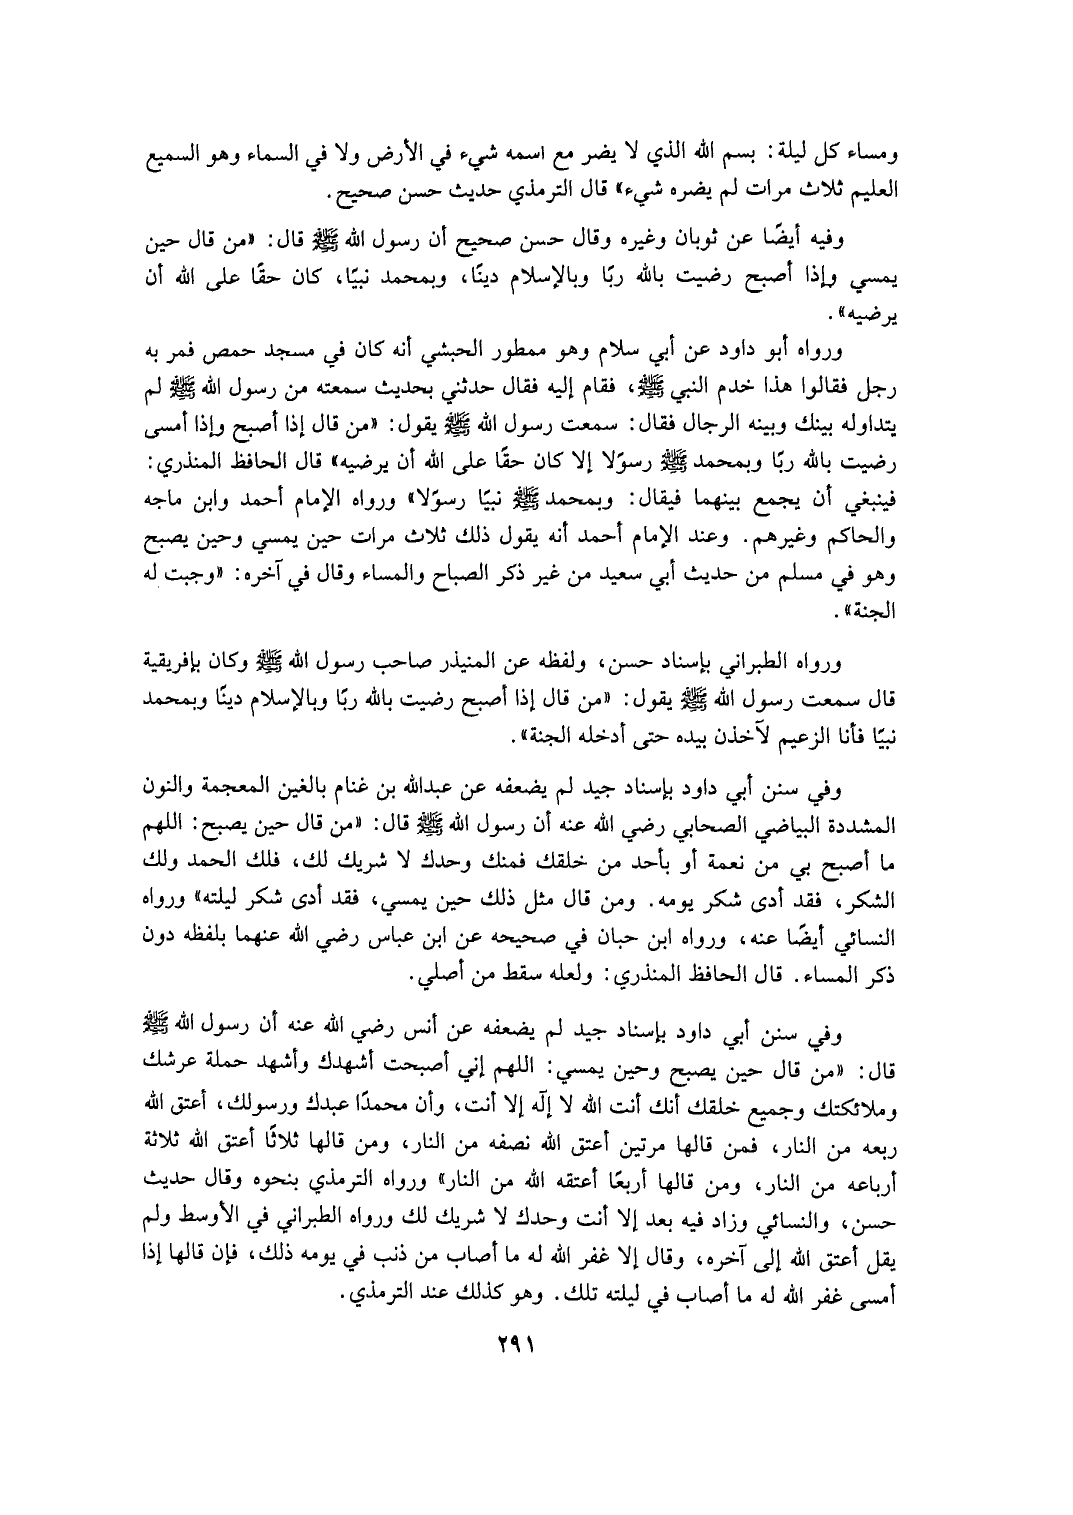 ومساء كل ليلة: بسم الله الذي لا يضر مع اسمه شيء في الأرض ولا في السماء وهو السميع
العليم ثلاث مرات لم يضره شيء» قال الترمذي حديث حسن صحيح.
وفيه أيضًا عن ثوبان وغيره وقال حسن صحيح أن رسول الله ﷺ قال: «من قال حين
يمسي وإذا أصبح رضيت بالله ربًا وبالإسلام دينًا، وبمحمد نبيًا، كان حقًا على الله أن
يرضيه».
ورواه أبو داود عن أبي سلام وهو ممطور الحبشي أنه كان في مسجد حمص فمر به
رجل فقالوا هذا خدم النبي ﷺ، فقام إليه فقال حدثني بحديث سمعته من رسول الله ﷺ لم
يتداوله بينك وبينه الرجال فقال: سمعت رسول الله ﷺ يقول: «من قال إذا أصبح وإذا أمسى
رضيت بالله ربًا وبمحمد ﷺ رسوًلا إلا كان حقًا على الله أن يرضيه» قال الحافظ المنذري:
فينبغي أن يجمع بينهما فيقال: وبمحمد ﷺ نبيًا رسوًلا» ورواه الإمام أحمد وابن ماجه
والحاكم وغيرهم. وعند الإمام أحمد أنه يقول ذلك ثلاث مرات حين يمسي وحين يصبح
وهو في مسلم من حديث أبي سعيد من غير ذكر الصباح والمساء وقال في آخره: «وجبت له
الجنة».
ورواه الطبراني بإسناد حسن، ولفظه عن المنيذر صاحب رسول الله ﷺ وكان بإفريقية
قال سمعت رسول الله ﷺ يقول: «من قال إذا أصبح رضيت بالله ربًا وبالإسلام دينًا وبمحمد
نبيًا فأنا الزعيم لآخذن بيده حتى أدخله الجنة».
وفي سنن أبي داود بإسناد جيد لم يضعفه عن عبدالله بن غنام بالغين المعجمة والنون
المشددة البياضي الصحابي رضي الله عنه أن رسول الله ﷺ قال: «من قال حين يصبح: اللهم
ما أصبح بي من نعمة أو بأحد من خلقك فمنك وحدك لا شريك لك، فلك الحمد ولك
الشكر، فقد أدى شكر يومه. ومن قال مثل ذلك حين يمسي، فقد أدى شكر ليلته» ورواه
النسائي أيضًا عنه، ورواه ابن حبان في صحيحه عن ابن عباس رضي الله عنهما بلفظه دون
ذكر المساء. قال الحافظ المنذري: ولعله سقط من أصلي.
وفي سنن أبي داود بإسناد جيد لم يضعفه عن أنس رضي الله عنه أن رسول الله ﷺ
قال: «من قال حين يصبح وحين يمسي: اللهم إني أصبحت أشهدك وأشهد حملة عرشك
وملائكتك وجميع خلقك أنك أنت الله لا إلٰه إلا أنت، وأن محمدًا عبدك ورسولك، أعتق الله
ربعه من النار، فمن قالها مرتين أعتق الله نصفه من النار، ومن قالها ثلاثًا أعتق الله ثلاثة
أرباعه من النار، ومن قالها أربعًا أعتقه الله من النار» ورواه الترمذي بنحوه وقال حديث
حسن، والنسائي وزاد فيه بعد إلا أنت وحدك لا شريك لك ورواه الطبراني في الأوسط ولم
يقل أعتق الله إلى آخره، وقال إلا غفر الله له ما أصاب من ذنب في يومه ذلك، فإن قالها إذا
أمسى غفر الله له ما أصاب في ليلته تلك. وهو كذلك عند الترمذي.
٢٩١